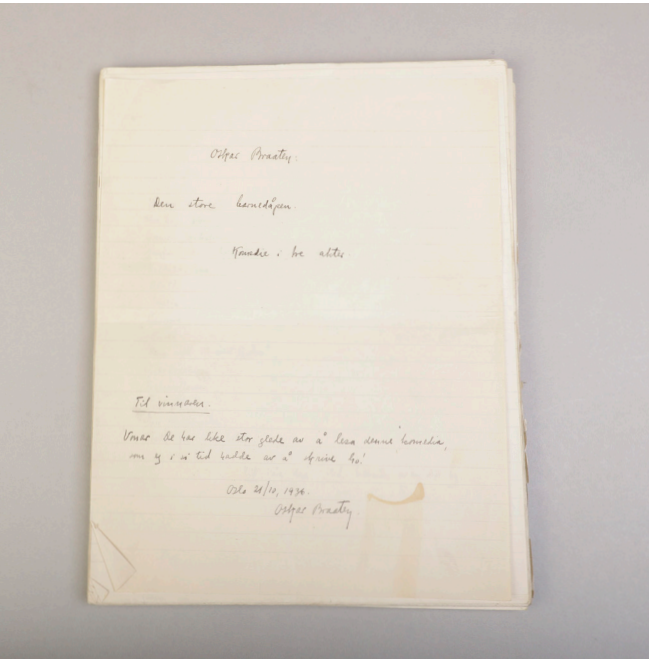 Oskar Braaten:
Den store barnedåpen.
Komedie i tre akter.
Til vinnaren.
Vonar De har like stor glede av å lesa denne komedia,
som eg i si tid hadde av å skrive ho!
Oslo 21/10, 1934.
Oskar Braaten.